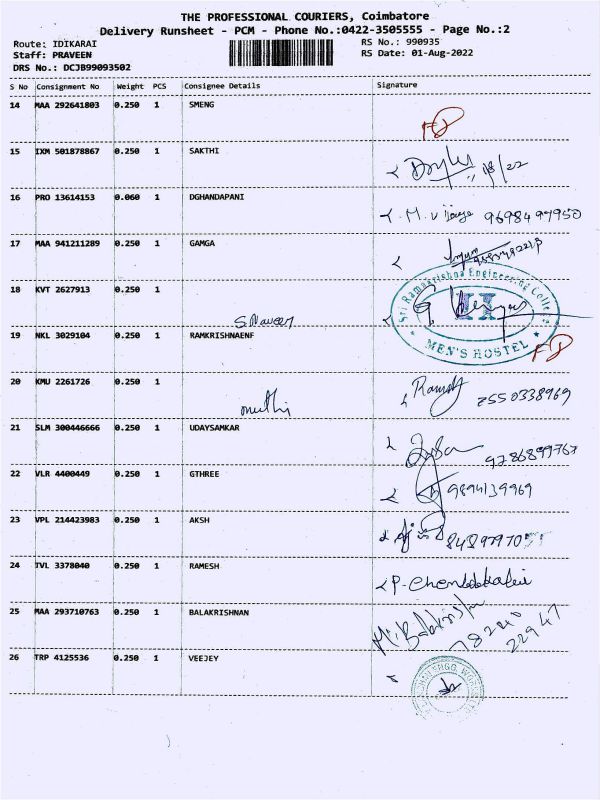 THE PROFESSIONAL COURIERS, Coimbatore
Delivery Runsheet - PCM - Phone No.:0422-3505555 - Page No.:2
Route: IDIKARAI RS No.: 990935
Staff: PRAVEEN RS Date: 01-Aug-2022
DRS No.: DCJB99093502
S No Consignment No Weight PCS Consignee Details Signature
14 MAA 292641803 0.250 1 SMENG
15 IXM 501878867 0.250 1 SAKTHI
16 PRO 13614153 0.060 1 DGHANDAPANI
9698497950
17 MAA 941211289 0.250 1 GAMGA
18 KVT 2627913 0.250 1
Sri Ramakrishna Engineering College
II
MEN'S HOSTEL
S. Naveen
19 NKL 3029104 0.250 1 RAMKRISHNAENF
20 KMU 2261726 0.250 1
muthi
7550338969
21 SLM 300446666 0.250 1 UDAYSAMKAR
9786899767
22 VLR 4400449 0.250 1 GTHREE
9894139969
23 VPL 214423983 0.250 1 AKSH
24 TVL 3378040 0.250 1 RAMESH
25 MAA 293710763 0.250 1 BALAKRISHNAN
78240
22947
26 TRP 4125536 0.250 1 VEEJEY